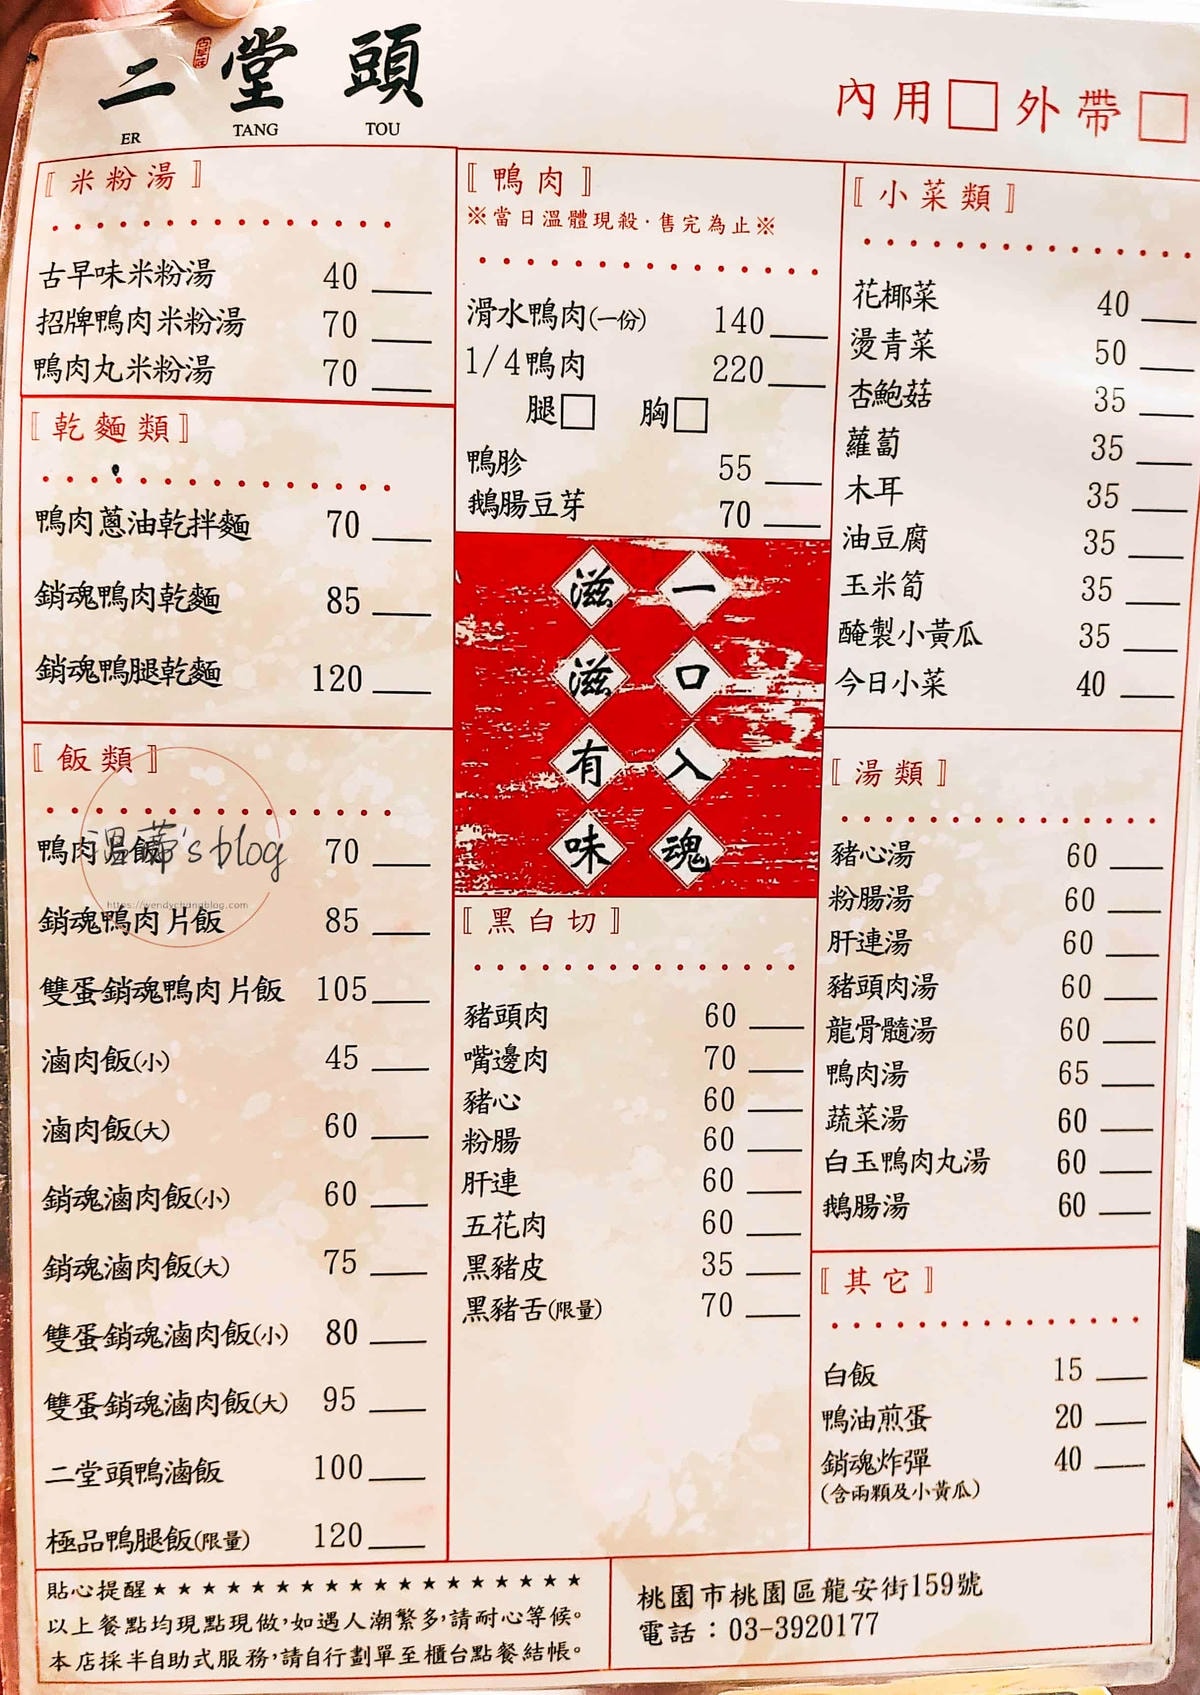 二堂頭
古早味
ER TANG TOU
內用□ 外帶□
〖米粉湯〗
古早味米粉湯 40
招牌鴨肉米粉湯 70
鴨肉丸米粉湯 70
〖乾麵類〗
鴨肉蔥油乾拌麵 70
銷魂鴨肉乾麵 85
銷魂鴨腿乾麵 120
〖飯類〗
鴨肉 飯 70
's blog
https://wendychangblog.com
銷魂鴨肉片飯 85
雙蛋銷魂鴨肉片飯 105
滷肉飯(小) 45
滷肉飯(大) 60
銷魂滷肉飯(小) 60
銷魂滷肉飯(大) 75
雙蛋銷魂滷肉飯(小) 80
雙蛋銷魂滷肉飯(大) 95
二堂頭鴨滷飯 100
極品鴨腿飯(限量) 120
〖鴨肉〗
※當日溫體現殺·售完為止※
滑水鴨肉(一份) 140
1/4鴨肉 220
腿□ 胸□
鴨胗 55
鵝腸豆芽 70
一口入魂
滋滋有味
〖黑白切〗
豬頭肉 60
嘴邊肉 70
豬心 60
粉腸 60
肝連 60
五花肉 60
黑豬皮 35
黑豬舌(限量) 70
〖小菜類〗
花椰菜 40
燙青菜 50
杏鮑菇 35
蘿蔔 35
木耳 35
油豆腐 35
玉米筍 35
醃製小黃瓜 35
今日小菜 40
〖湯類〗
豬心湯 60
粉腸湯 60
肝連湯 60
豬頭肉湯 60
龍骨髓湯 60
鴨肉湯 65
蔬菜湯 60
白玉鴨肉丸湯 60
鵝腸湯 60
〖其它〗
白飯 15
鴨油煎蛋 20
銷魂炸彈 40
(含兩顆及小黃瓜)
貼心提醒★★★★★★★★★★★★★★★★★★
以上餐點均現點現做,如遇人潮繁多,請耐心等候。
本店採半自助式服務,請自行劃單至櫃台點餐結帳。
桃園市桃園區龍安街159號
電話：03-3920177